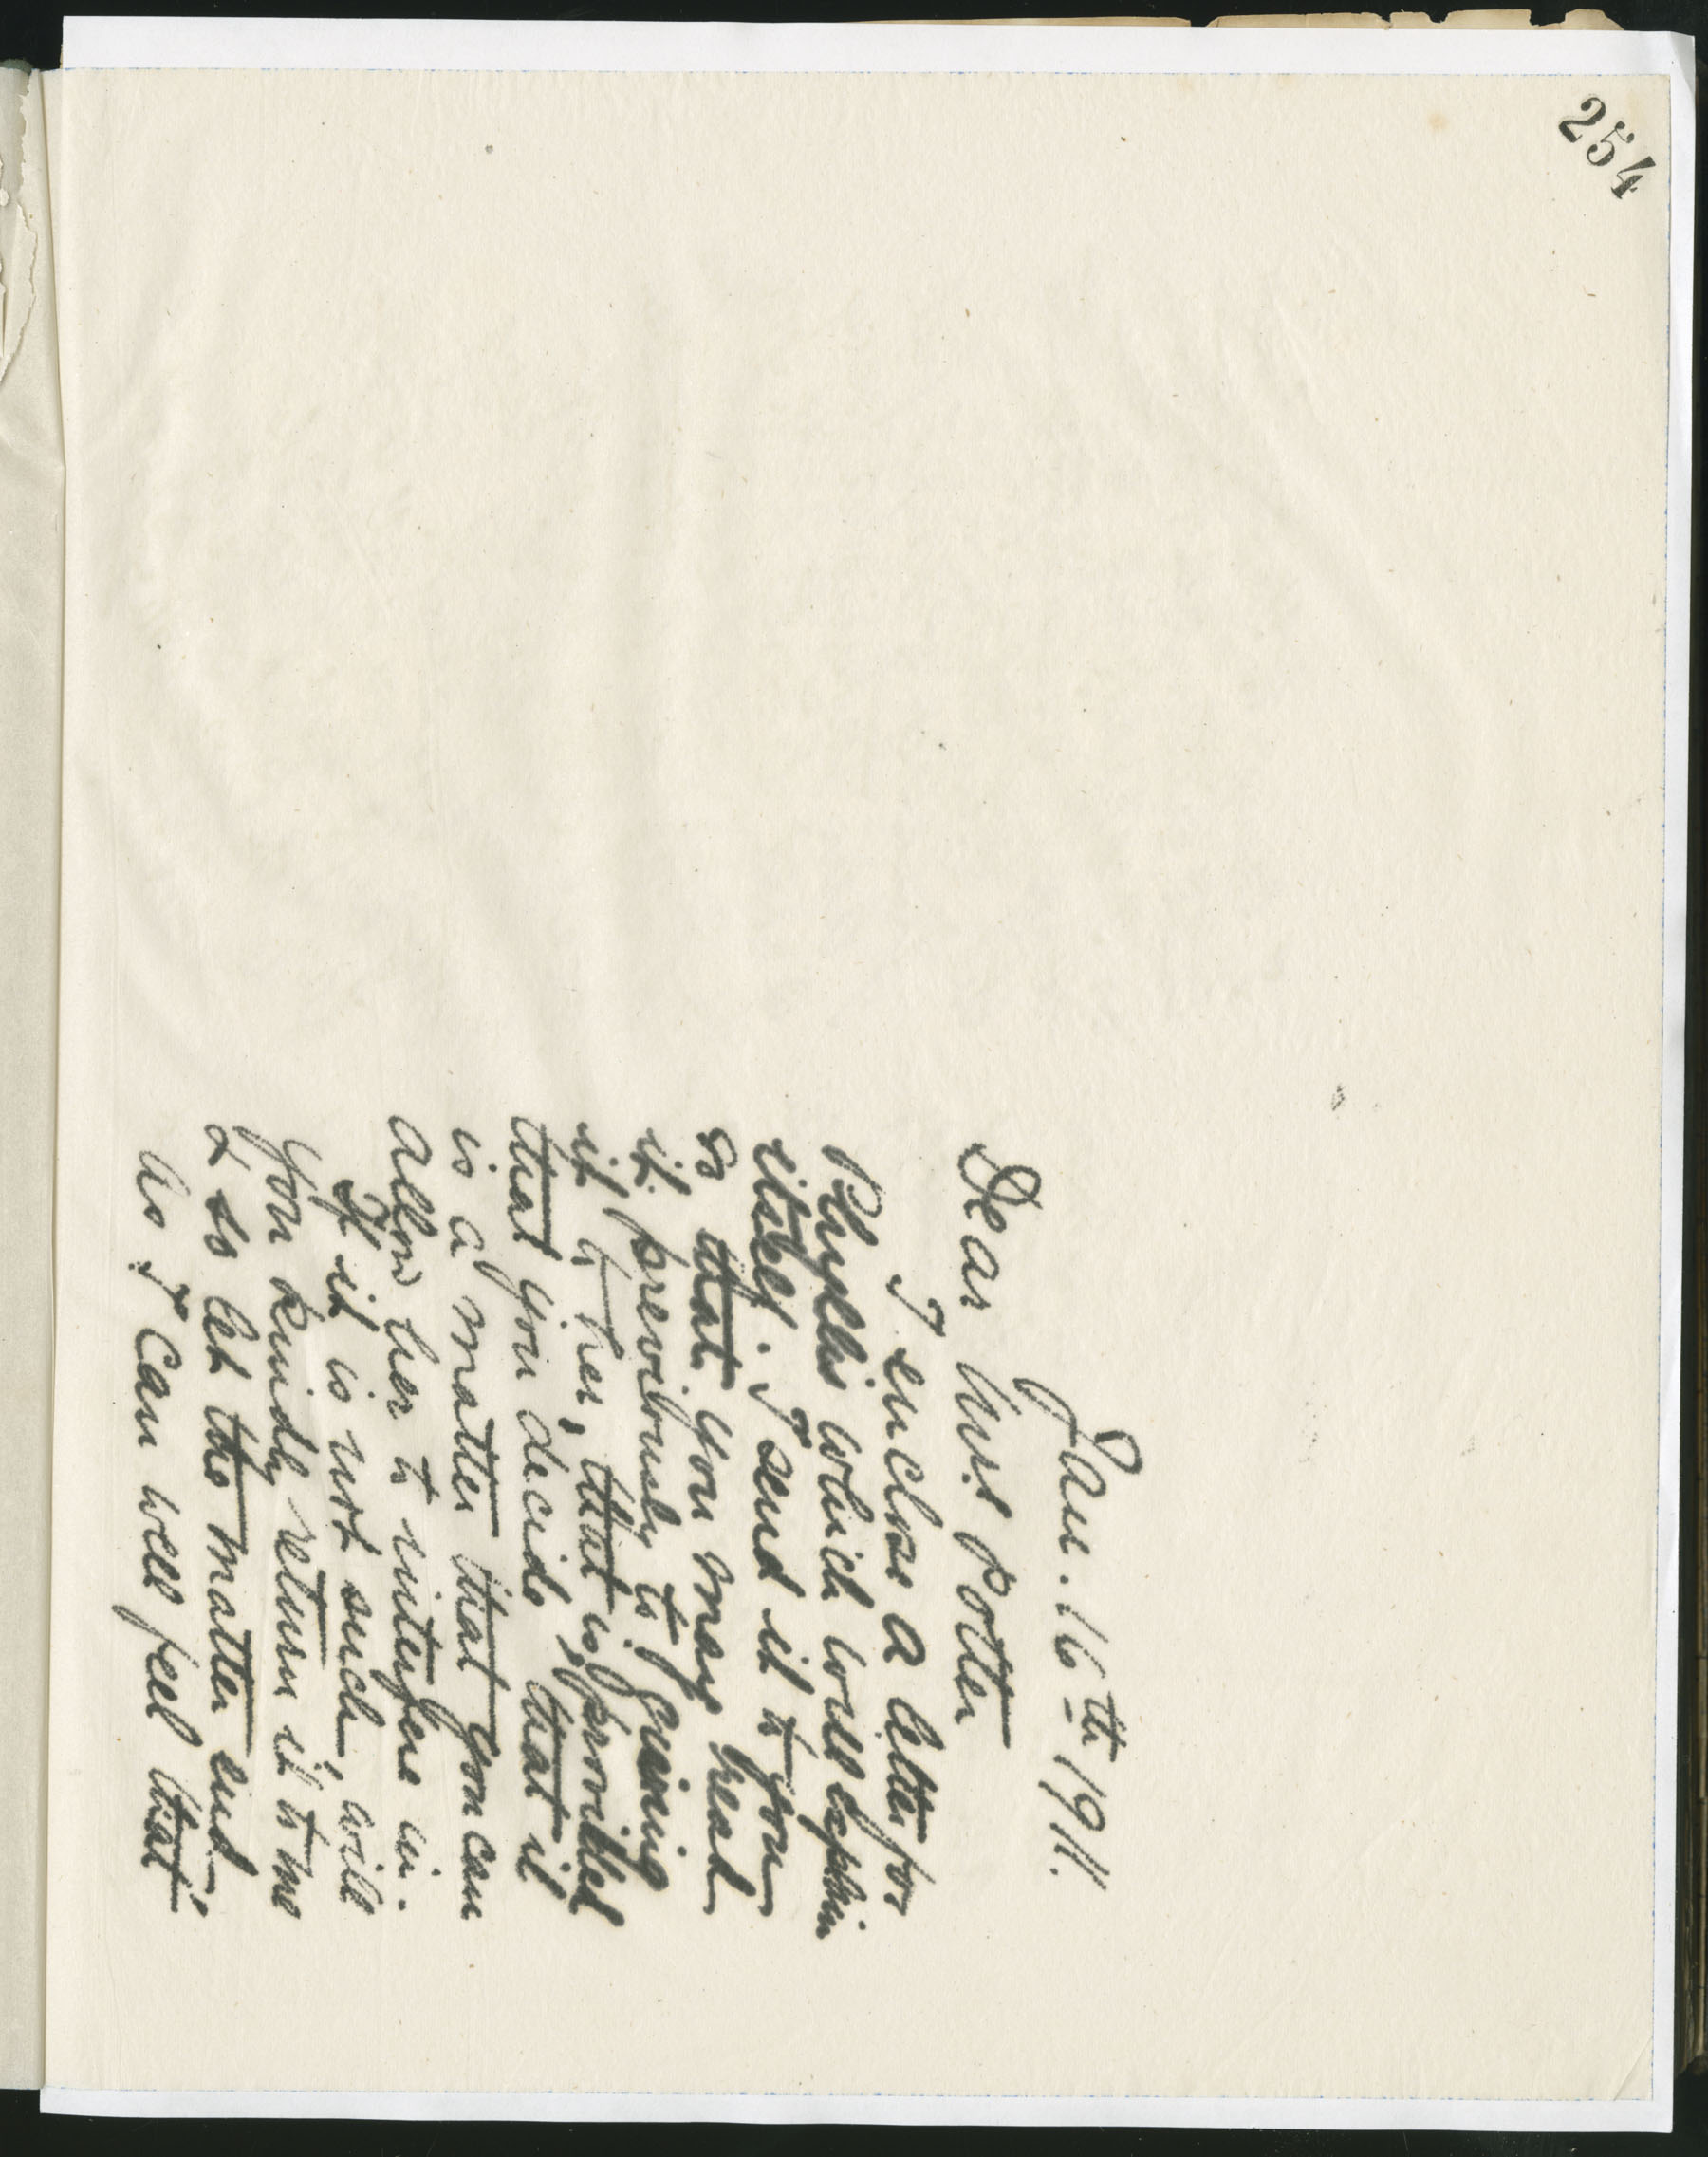 254
Jan. 16th 1911.
Dear Mrs Potter
I enclose a letter for
Phyllis which will explain
itself. I send it to you
so that you may read
it previously to giving
it to her, that is, provided
that you decide that it
is a matter that you can
allow her to interfere in.
If it is not such, will
you kindly return it to me
& so let the matter end.
As I can well feel that